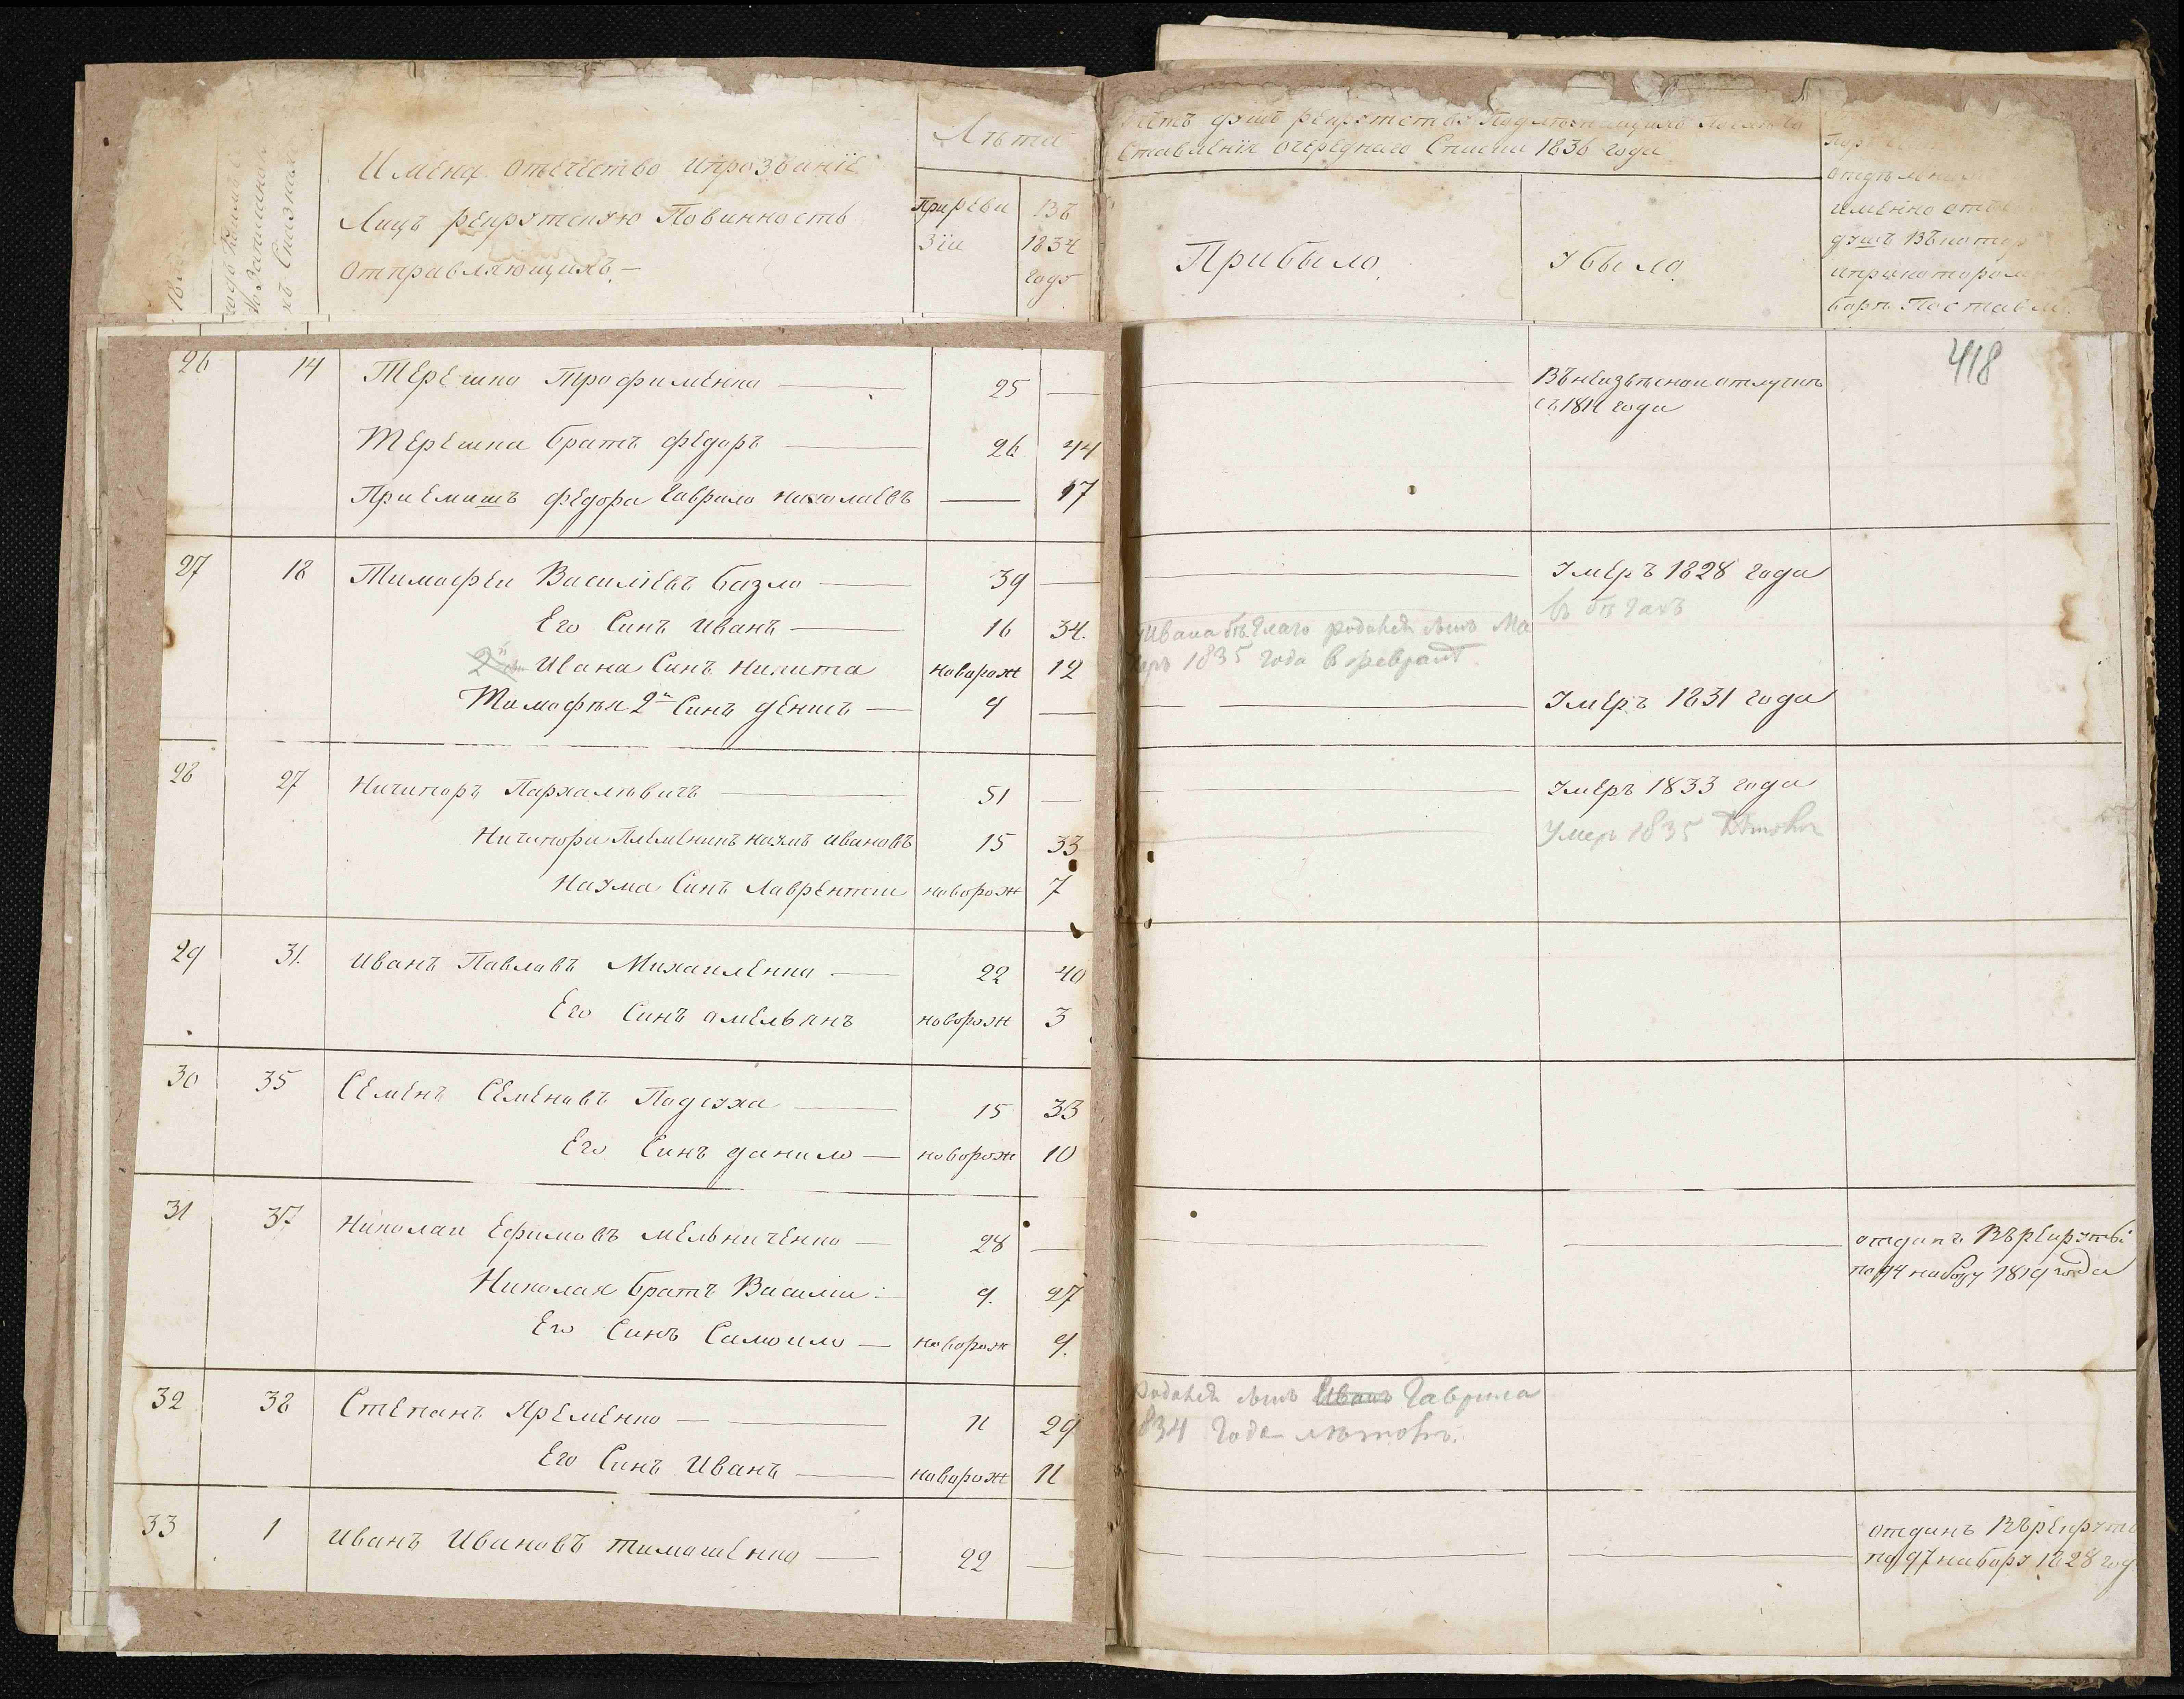 Имена отечество ипрозваніе
Лицъ рекрутскую Повинность
Отправляющихъ. —
Лѣта
Приреви
зіи
Въ
1834
году
ставленія очереднаго Списка 1836 года
Прибыло.
Убыло.
именно
душъ
418
26 14 Терешко Трофименко — 25 —
Въ неизвѣсной отлучкѣ
съ 1811 года
Терешка братъ федоръ — 26 44
Приемишъ федора Гаврило николаевъ — 17
27 18 Тимофеи Василіевъ базло — 39 — Умеръ 1828 года
Его Синъ Иванъ — 16 34. въ бѣгахъ
Ивана Синъ никита новорож 12
Ивана бѣглаго родился сынъ Ма
1835 года в февралѣ.
Тимофѣя 2й Синъ денисъ — 9 — Умеръ 1831 года
28 27 Ничипоръ Пархамовичъ — 51 — Умеръ 1833 года
Ничипора Племеникъ наумъ ивановъ 15 33 Умеръ 1835
Наума Синъ Лаврентеи новорож 7
29 31. Иванъ Павловъ Михаиленко — 22 40
Его Синъ омельянъ новорож 3
30 35 Семенъ Семеновъ Подсуха — 15 33
Его Синъ данило — новорож 10
31 37 Николаи Ефимовъ мельниченко — 28 — отданъ Въ рекруты
по 94 набору 1819 года
Николая братъ Василии — 9. 27
Его Синъ Самоило — новорож 9.
32 38 Степанъ Яременко — 11 29
родился сынъ Иванъ Гаврила
834 года
Его Синъ Иванъ — новорож 11
33 1 Иванъ Ивановъ тимошенко — 22 — отданъ Въ рекруты
по 97 набору 1828 год